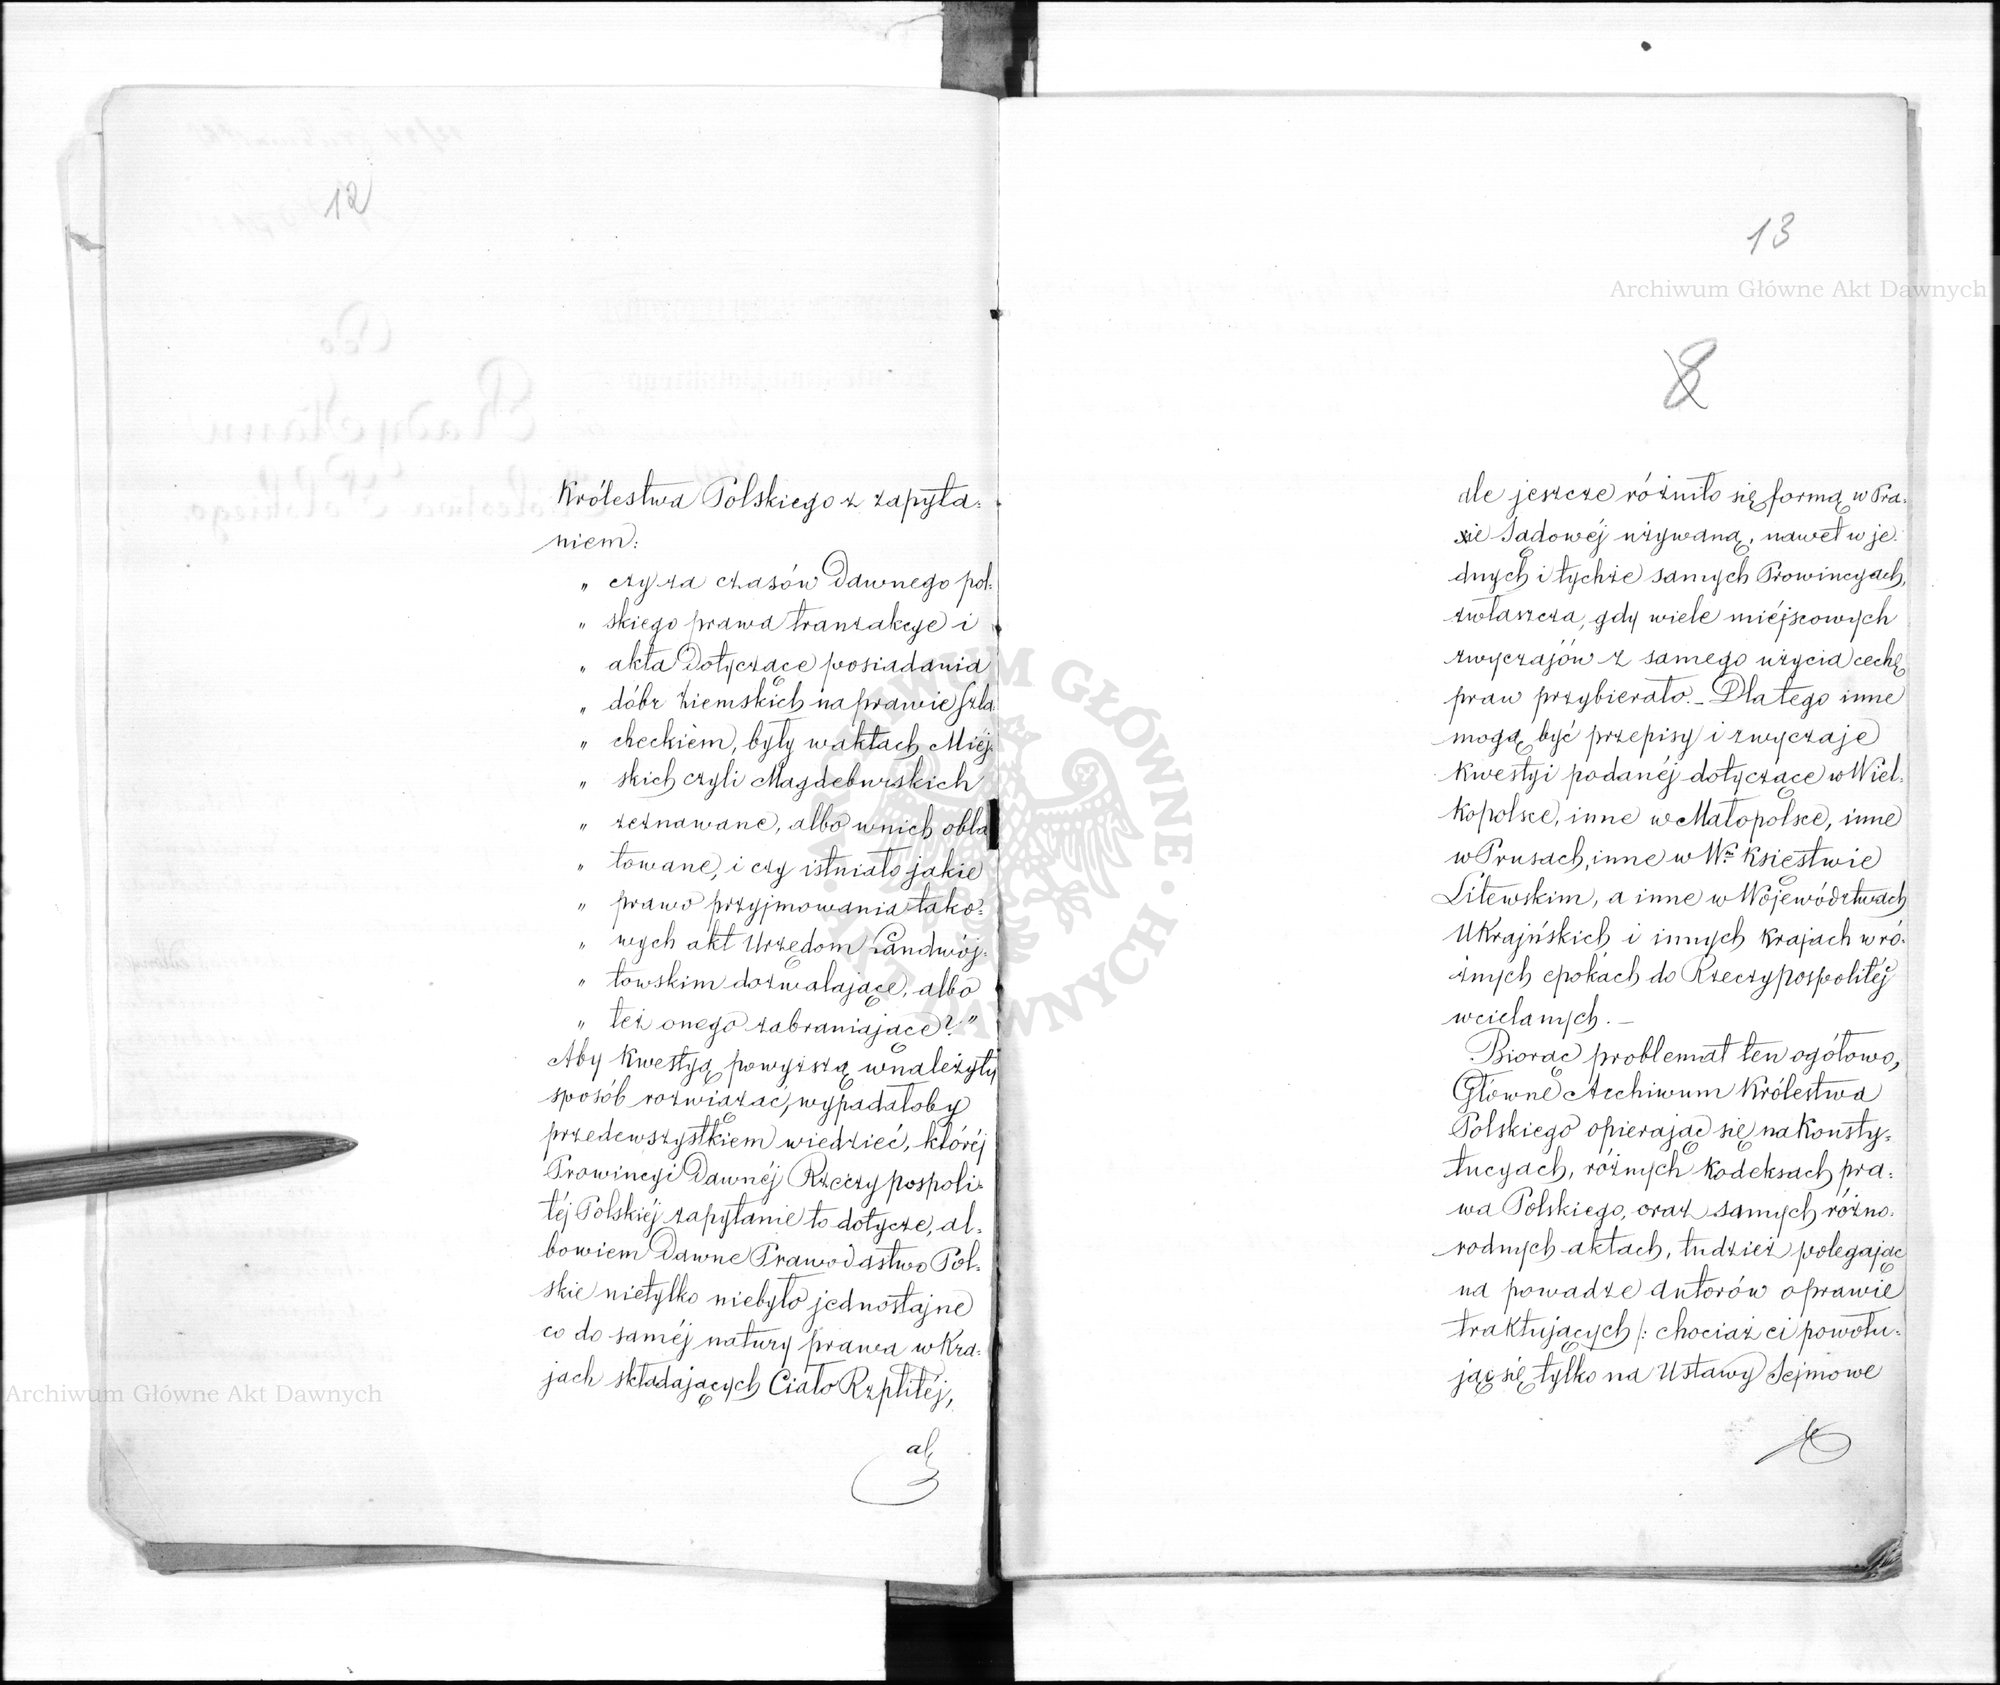 12
Królestwa Polskiego z zapyta-
niem:
„ czy za czasów Dawnego pol-
„ skiego prawa tranzakcye i
„ akta Dotyczące posiadania
„ dóbr Ziemskich na prawie szla
„ checkiem, były w aktach Miéj-
„ skich czyli Magdeburskich
„ zeznawane, albo w nich obla
„ towane, i czy istniało jakie
„ prawo przyjmowania tako-
„ wych akt Urzędom Landwój-
„ towskim dozwalające, albo
„ też onego zabraniające?"
Aby Kwestyą powyższą w należyty
sposób rozwiązać, wypadałoby
przedewszystkiem wiedzieć, któréj
Prowincyi Dawnéj Rzeczypospoli-
téj Polskiéj zapytanie to dotycze, al-
bowiem Dawne Prawodastwo Pol-
skie nietylko niebyło jednostajne
co do saméj natury prawa w Kra-
jach składających Ciało Rzplitéj,
al
13
Archiwum Główne Akt Dawnych
8
ale jeszcze różniło się formą w Pra-
xie Sądowéj używaną, nawet w je-
dnych i tychże samych Prowincyach,
zwłaszcza, gdy wiele miéjscowych
zwyczajów z samego użycia cechę
praw przybierało. – Dlatego inne
mogą być przepisy i zwyczaje
Kwestyi podanéj dotyczące w Wiel-
kopolsce, inne w Małopolsce, inne
w Prusach, inne w Wm Księstwie
Litewskim, a inne w Województwach
Ukrajńskich i innych Krajach w ró-
żnych epokach do Rzeczypospolitéj
wcielanych. –
Biorąc problemat ten ogółowo,
Główne Archiwum Królestwa
Polskiego opierając się na Konsty-
tucyach, różnych Kodeksach pra-
wa Polskiego, oraz samych różno-
rodnych aktach, tudzież polegając
na powadze Autorów o prawie
traktujących /: chociaż ci powołu-
jąc się tylko na Ustawy Sejmowe
Archiwum Główne Akt Dawnych
ARCHIWUM GŁÓWNE AKT DAWNYCH